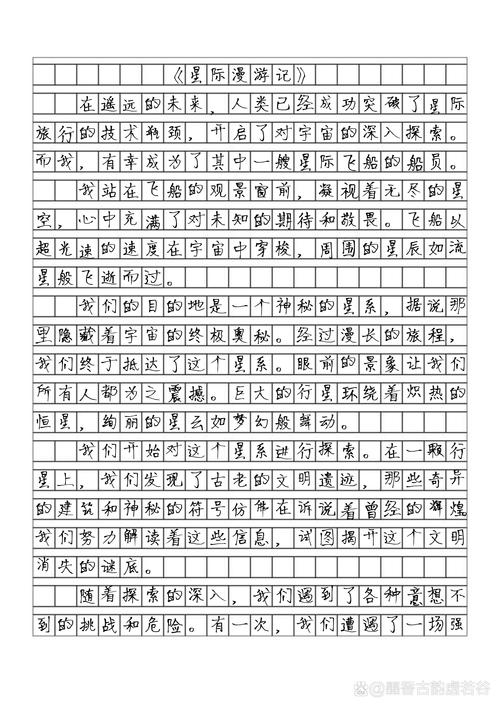 《星际漫游记》
在遥远的未来，人类已经成功突破了星际
旅行的技术瓶颈，开启了对宇宙的深入探索。
而我，有幸成为了其中一艘星际飞船的船员。
我站在飞船的观景窗前，凝视着无尽的星
空，心中充满了对未知的期待和敬畏。飞船以
超光速的速度在宇宙中穿梭，周围的星辰如流
星般飞逝而过。
我们的目的地是一个神秘的星系，据说那
里隐藏着宇宙的终极奥秘。经过漫长的旅程，
我们终于抵达了这个星系。眼前的景象让我们
所有人都为之震撼。巨大的行星环绕着炽热的
恒星，绚丽的星云如梦幻般舞动。
我们开始对这个星系进行探索。在一颗行
星上，我们发现了古老的文明遗迹，那些奇异
的建筑和神秘的符号仿佛在诉说着曾经的辉煌
我们努力解读着这些信息，试图揭开这个文明
消失的谜底。
随着探索的深入，我们遇到了各种意想不
到的挑战和危险。有一次，我们遭遇了一场强